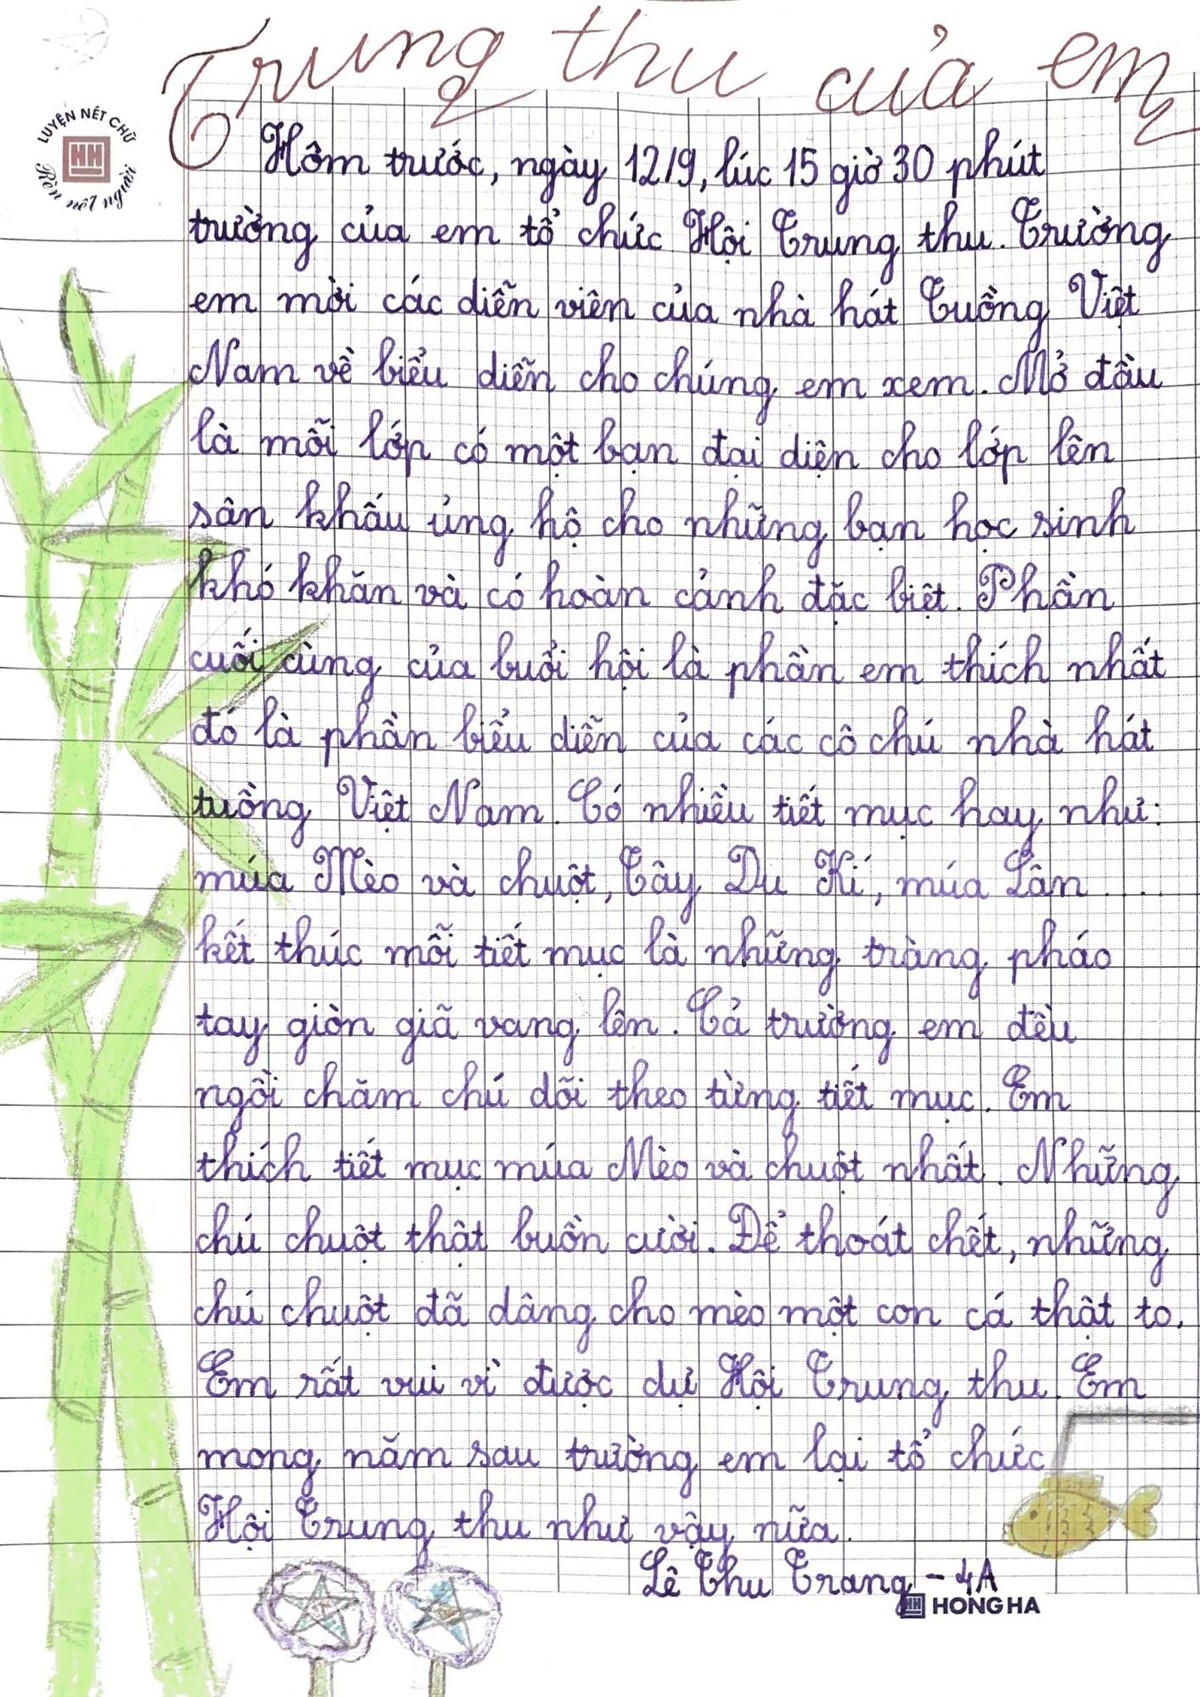 Trung thu của em
LUYỆN NÉT CHỮ
HH
Rèn nết người
Hôm trước, ngày 12/9, lúc 15 giờ 30 phút
trường của em tổ chức Hội Trung thu. Trường
em mời các diễn viên của nhà hát Tuồng Việt
Nam về biểu diễn cho chúng em xem. Mở đầu
là mỗi lớp có một bạn đại diện cho lớp lên
sân khấu ủng hộ cho những bạn học sinh
khó khăn và có hoàn cảnh đặc biệt. Phần
cuối cùng của buổi hội là phần em thích nhất
đó là phần biểu diễn của các cô chú nhà hát
tuồng Việt Nam. Có nhiều tiết mục hay như:
múa Mèo và chuột, Tây Du Kí, múa Lân....
kết thúc mỗi tiết mục là những tràng pháo
tay giòn giã vang lên. Cả trường em đều
ngồi chăm chú dõi theo từng tiết mục. Em
thích tiết mục múa Mèo và chuột nhất. Những
chú chuột thật buồn cười. Để thoát chết, những
chú chuột đã dâng cho mèo một con cá thật to.
Em rất vui vì được dự Hội Trung thu. Em
mong năm sau trường em lại tổ chức
Hội Trung thu như vậy nữa.
Lê Thu Trang - 4A
HH HONG HA